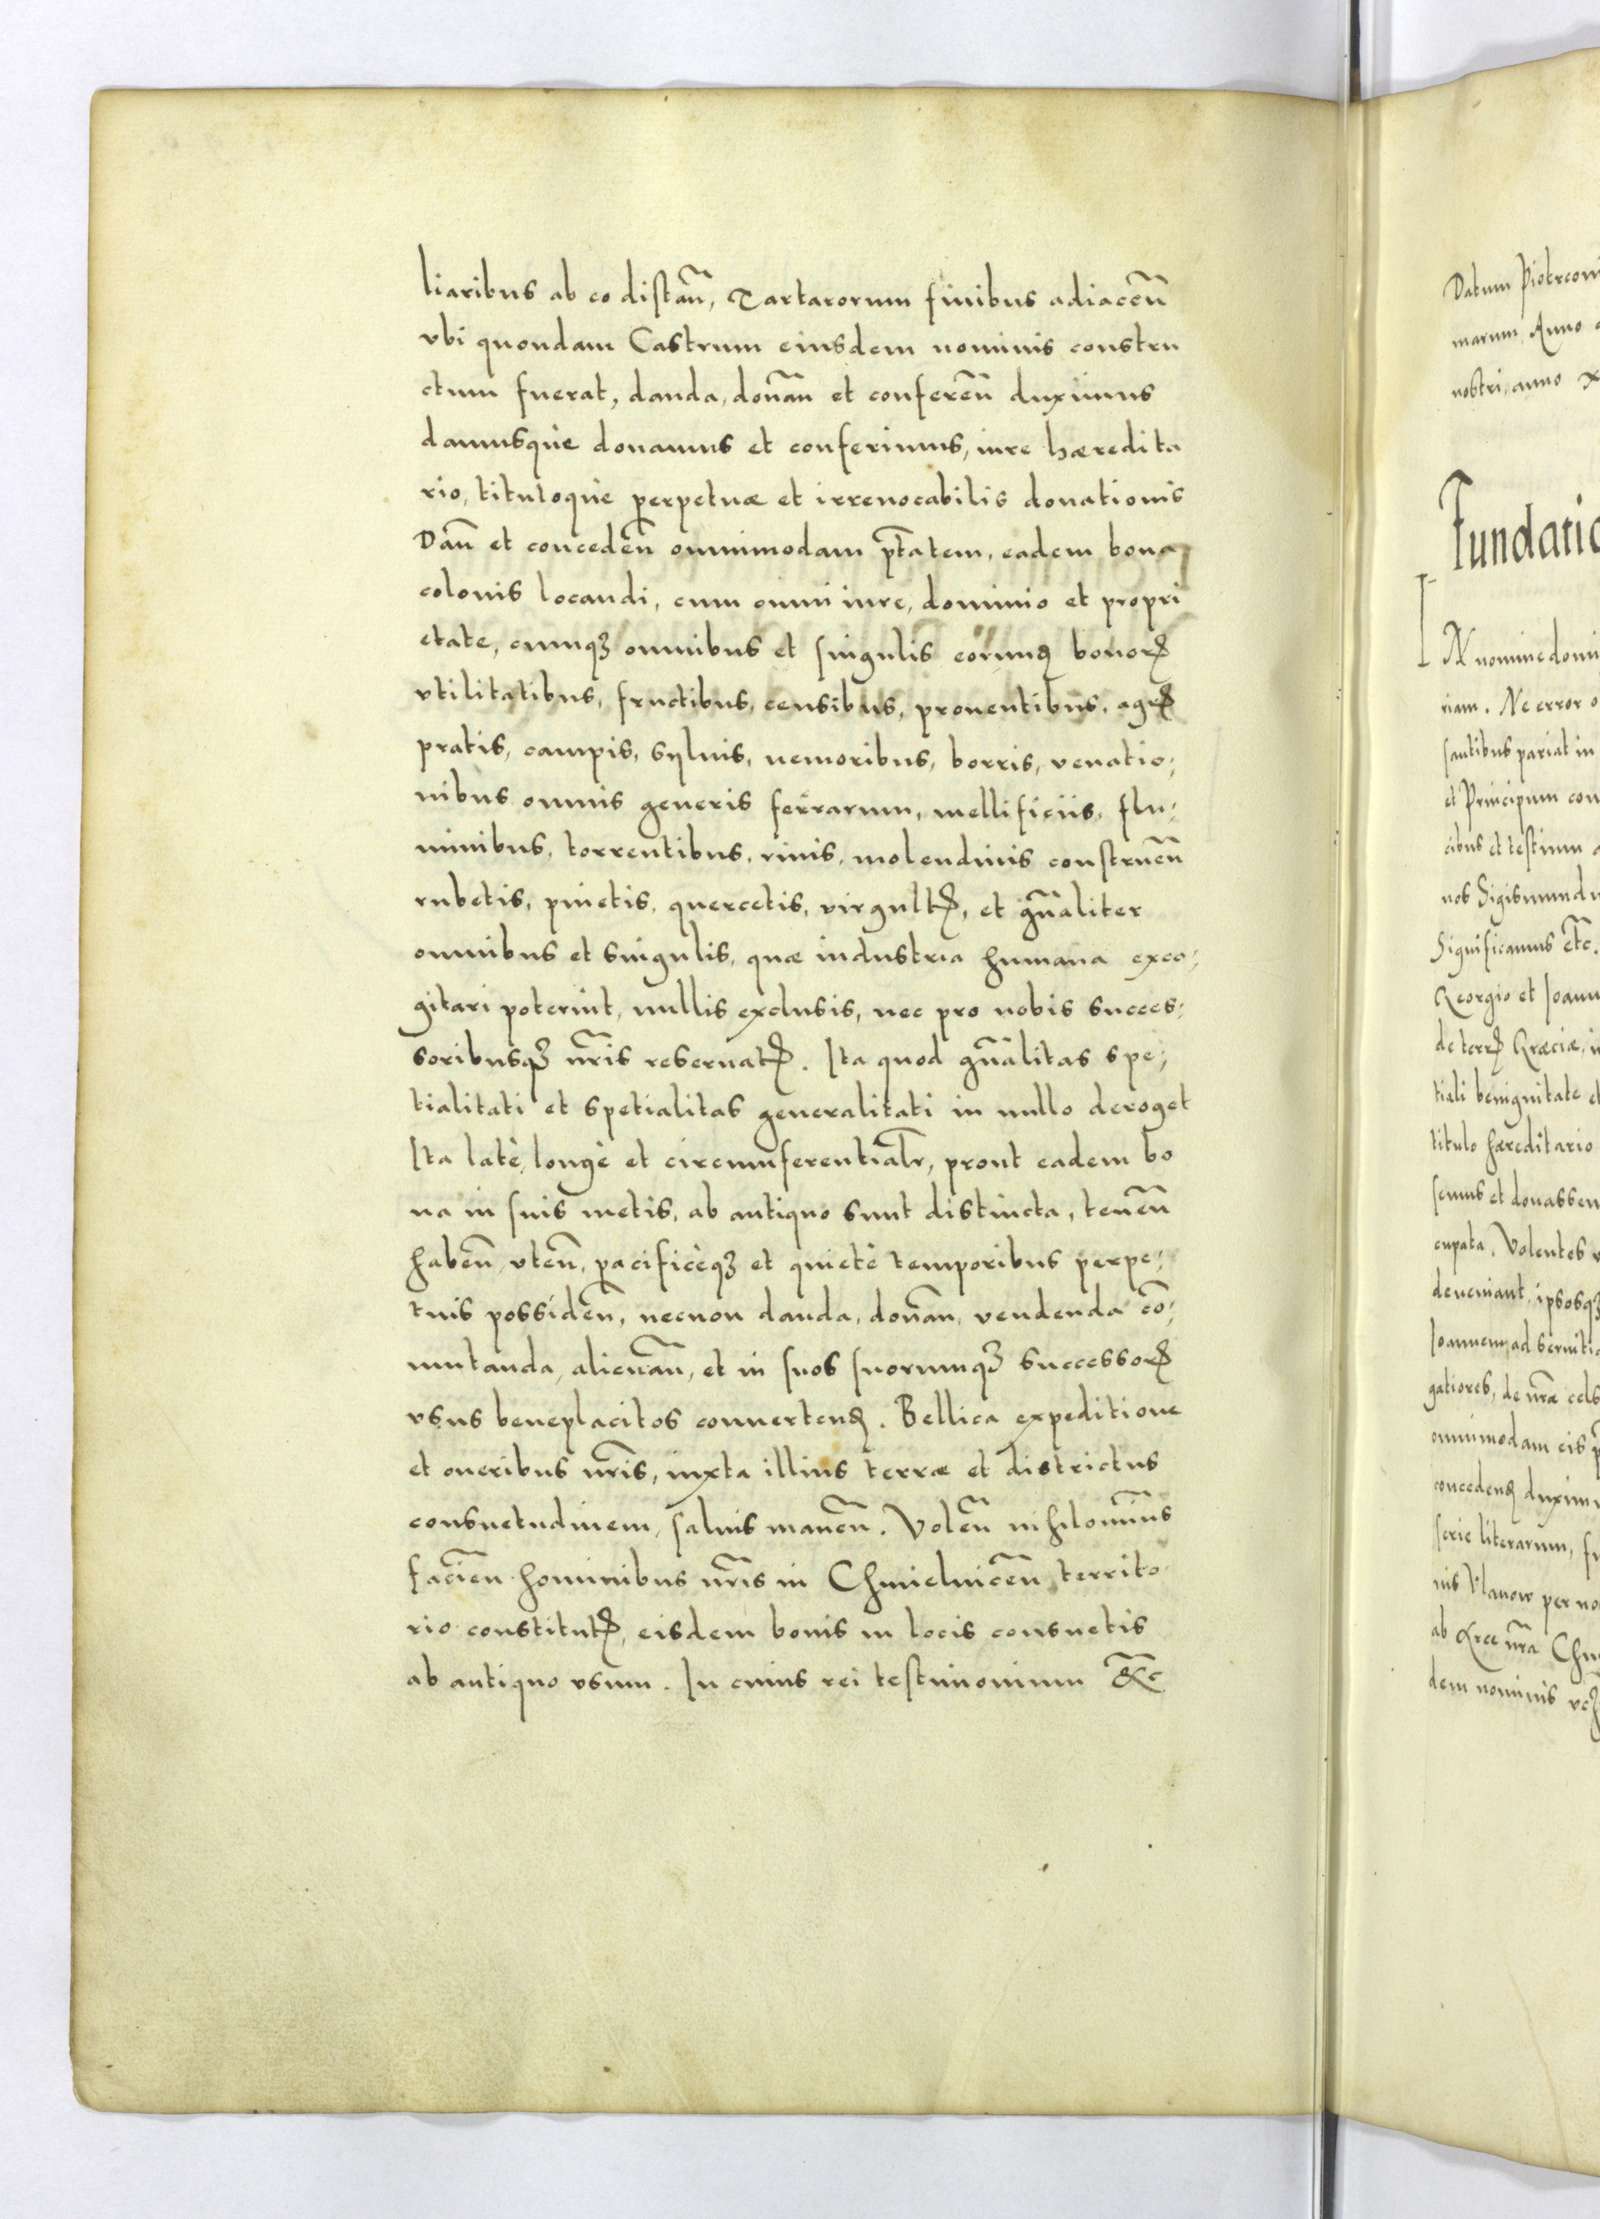 liaribus ab eo distan̄, Tartarorum finibus adiacen̄
vbi quondam Castrum eiusdem nominis constru
ctum fuerat, danda, donan̄ et conferen̄ duximus
damusque donamus et conferimus, iure hæredita
rio, tituloque perpetuæ et irreuocabilis donationis
Dan̄ et conceden̄ omnimodam ptatem, eadem bona
colonis locandi, cum omni iure, dominio et propri
etate, cumqꝫ omnibus et singulis eorund bonorꝭ
vtilitatibus, fructibus, censibus, prouentibus, agrꝭ
pratis, campis, syluis, nemoribus, borris, venatio,
nibus omnis generis ferrarum, mellificiis, flu,
minibus, torrentibus, riuis, molendinis construen̄
rubetis, pinetis, quercetis, virgultꝭ, et gn̄aliter
omnibus et singulis, quæ industria humana exco,
gitari poterint, nullis exclusis, nec pro nobis succes,
soribusqꝫ nr̄is reseruatꝭ. Ita quod gn̄alitas spe,
tialitati et spetialitas generalitati in nullo deroget
Ita latè, longè et circumferentialr̄, prout eadem bo
na in suis metis, ab antiquo sunt distincta, tenen̄
haben̄, vten̄, pacificèqꝫ et quietè temporibus perpe,
tuis possiden̄, necnon danda, donan̄, vendenda cō,
mutanda, alienan̄, et in suos suorumqꝫ successorꝭ
vsus beneplacitos conuertend. Bellica expeditione
et oneribus nr̄is, iuxta illius terræ et districtus
consuetudinem, saluis manen̄. Volen̄ nihilomin̄us
facien̄ hominibus nr̄is in Chmielnicen̄ territo
rio constitutꝭ, eisdem bonis in locis consuetis
ab antiquo vsum. In cuius rei testimonium &c
Datum Piotrcoui
marum, Anno
nostri, anno
Fundatio
IN nomine domi
riam. Ne error
santibus pariat in
et Principum con
cibus et testium
nos Sigismundu
Significamus etc.
Georgio et Ioann
de terrꝭ Græciæ,
tiali benignitate et
titulo hæreditario
semus et donassem
cupata. Volentes
deueniant, ipsosqꝫ
Ioannem, ad seruitia
gatiores, de nr̄æ cels
omnimodam eis
concedend duximu
serie literarum,
nis Vlanow per no
ab Arce nr̄a Chm
dem nominis